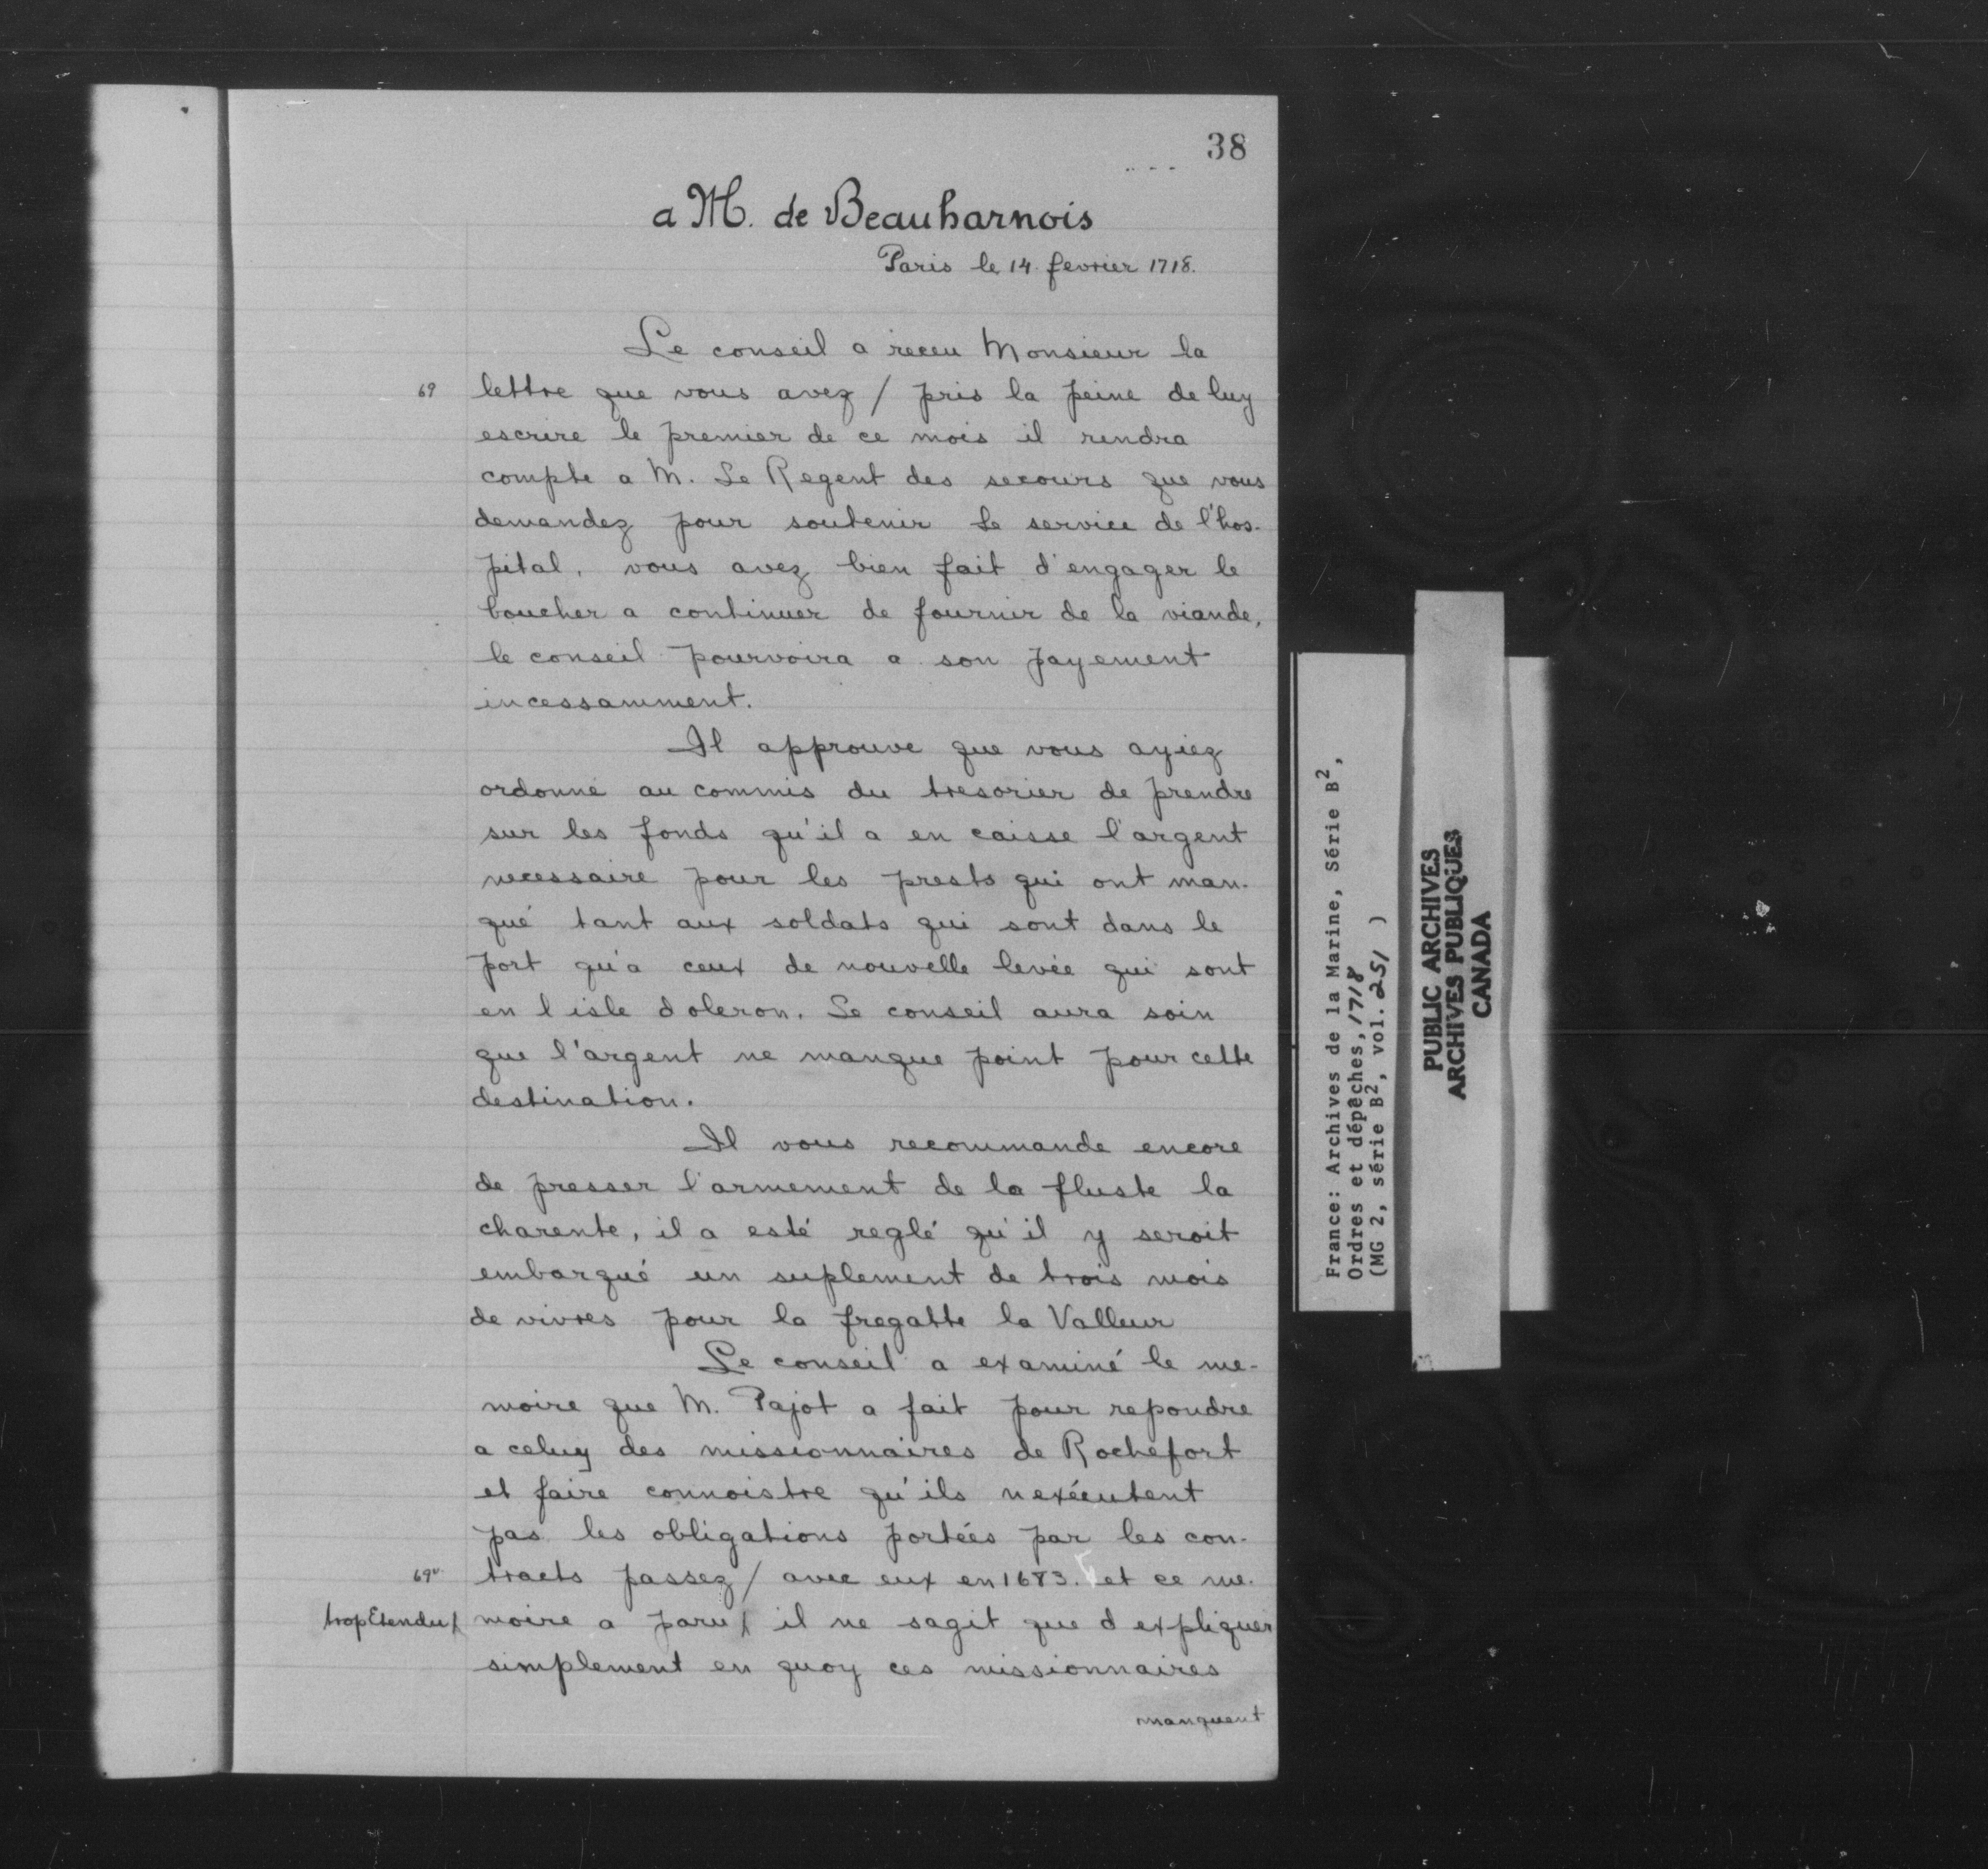 38
a M. de Beauharnois
Paris le 14 fevrier 1718.
Le conseil a receu Monsieur la
69 lettre que vous avez / pris la peine de luy
escrire le premier de ce mois il rendra
compte a M. Le Regent des secours que vous
demandez pour soutenir le service de l'hos-
pital, vous avez bien fait d'engager le
boucher a continuer de fournir de la viande,
le conseil pourvoira a son payement
incessamment.
Il approuve que vous ayiez
ordonné au commis du tresorier de prendre
sur les fonds qu'il a en caisse l'argent
necessaire pour les prests qui ont man-
qué tant aux soldats qui sont dans le
port qu'a ceux de nouvelle levée qui sont
en l isle d oleron. Le conseil aura soin
que l'argent ne manque point pour cette
destination.
Il vous recommande encore
de presser l'armement de la fluste la
charente, il a esté reglé qu'il y seroit
embarqué un suplement de trois mois
de vivres pour la fregatte la Valleur
Le conseil a examiné le me-
moire que M. Pajot a fait pour repondre
a celuy des missionnaires de Rochefort
et faire connoistre qu'ils nexécutent
pas les obligations portées par les con-
69v tracts passez / avec eux en 1683. et ce me-
trop Etendu/ moire a paru/ il ne sagit que d expliquer
simplement en quoy ces missionnaires
manquent
France: Archives de la Marine, Série B2,
Ordres et dépêches, 1718
(MG 2, série B2, vol. 251 )
PUBLIC ARCHIVES
ARCHIVES PUBLIQUES
CANADA